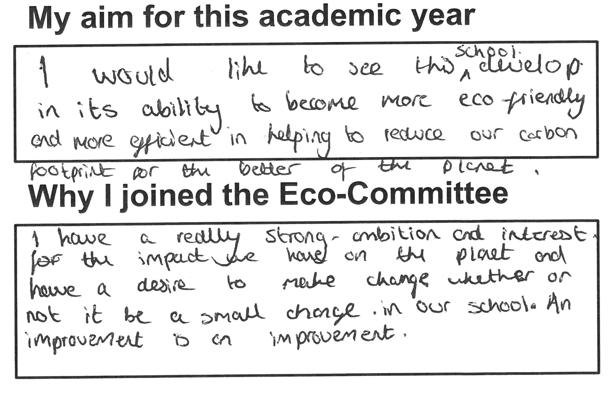 My aim for this academic year
I would like to see this school develop
in its ability to become more eco-friendly
and more efficient in helping to reduce our carbon
footprint for the better of the planet.
Why I joined the Eco-Committee
I have a really strong ambition and interest
for the impact we have on the planet and
have a desire to make change whether or
not it be a small change in our school. An
improvement is an improvement.